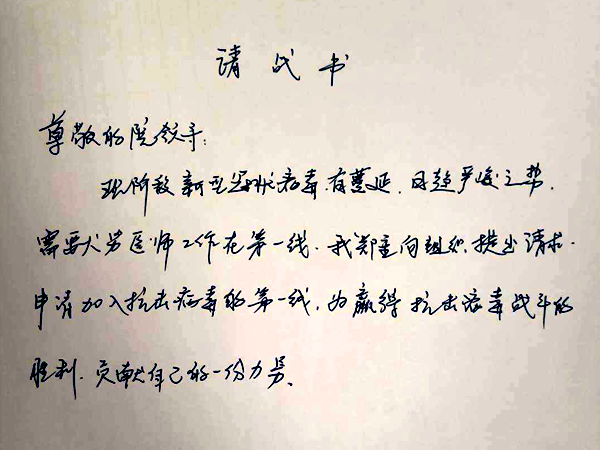 请战书
尊敬的院领导：
现阶段新型冠状病毒有蔓延、日趋严峻之势，
需要大量医师工作在第一线，我郑重向组织提出请求，
申请加入抗击病毒的第一线，为赢得抗击病毒战斗的
胜利，贡献自己的一份力量、